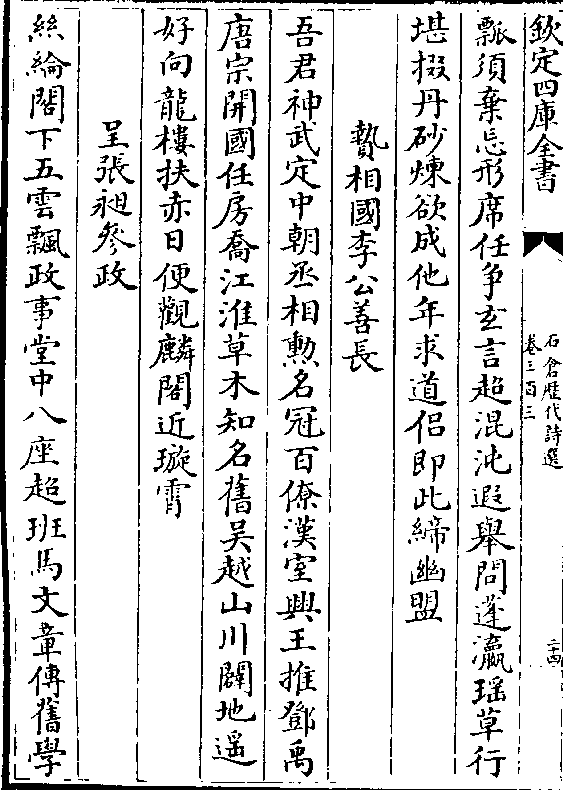 欽定四庫全書
石倉歷代詩選
卷三百三
二十四
瓢須棄忘形席任爭玄言超混沌遐舉問蓬瀛瑶草行
堪掇丹砂煉欲成他年求道侣即此締幽盟
贄相國李公善長
吾君神武定中朝丞相勲名冠百僚漢室興王推鄧禹
唐宗開國任房喬江淮草木知名舊吴越山川闢地遥
好向龍樓扶赤日便觀麟閣近璇霄
呈張昶參政
絲綸閣下五雲飄政事堂中八座超班馬文章傳舊學